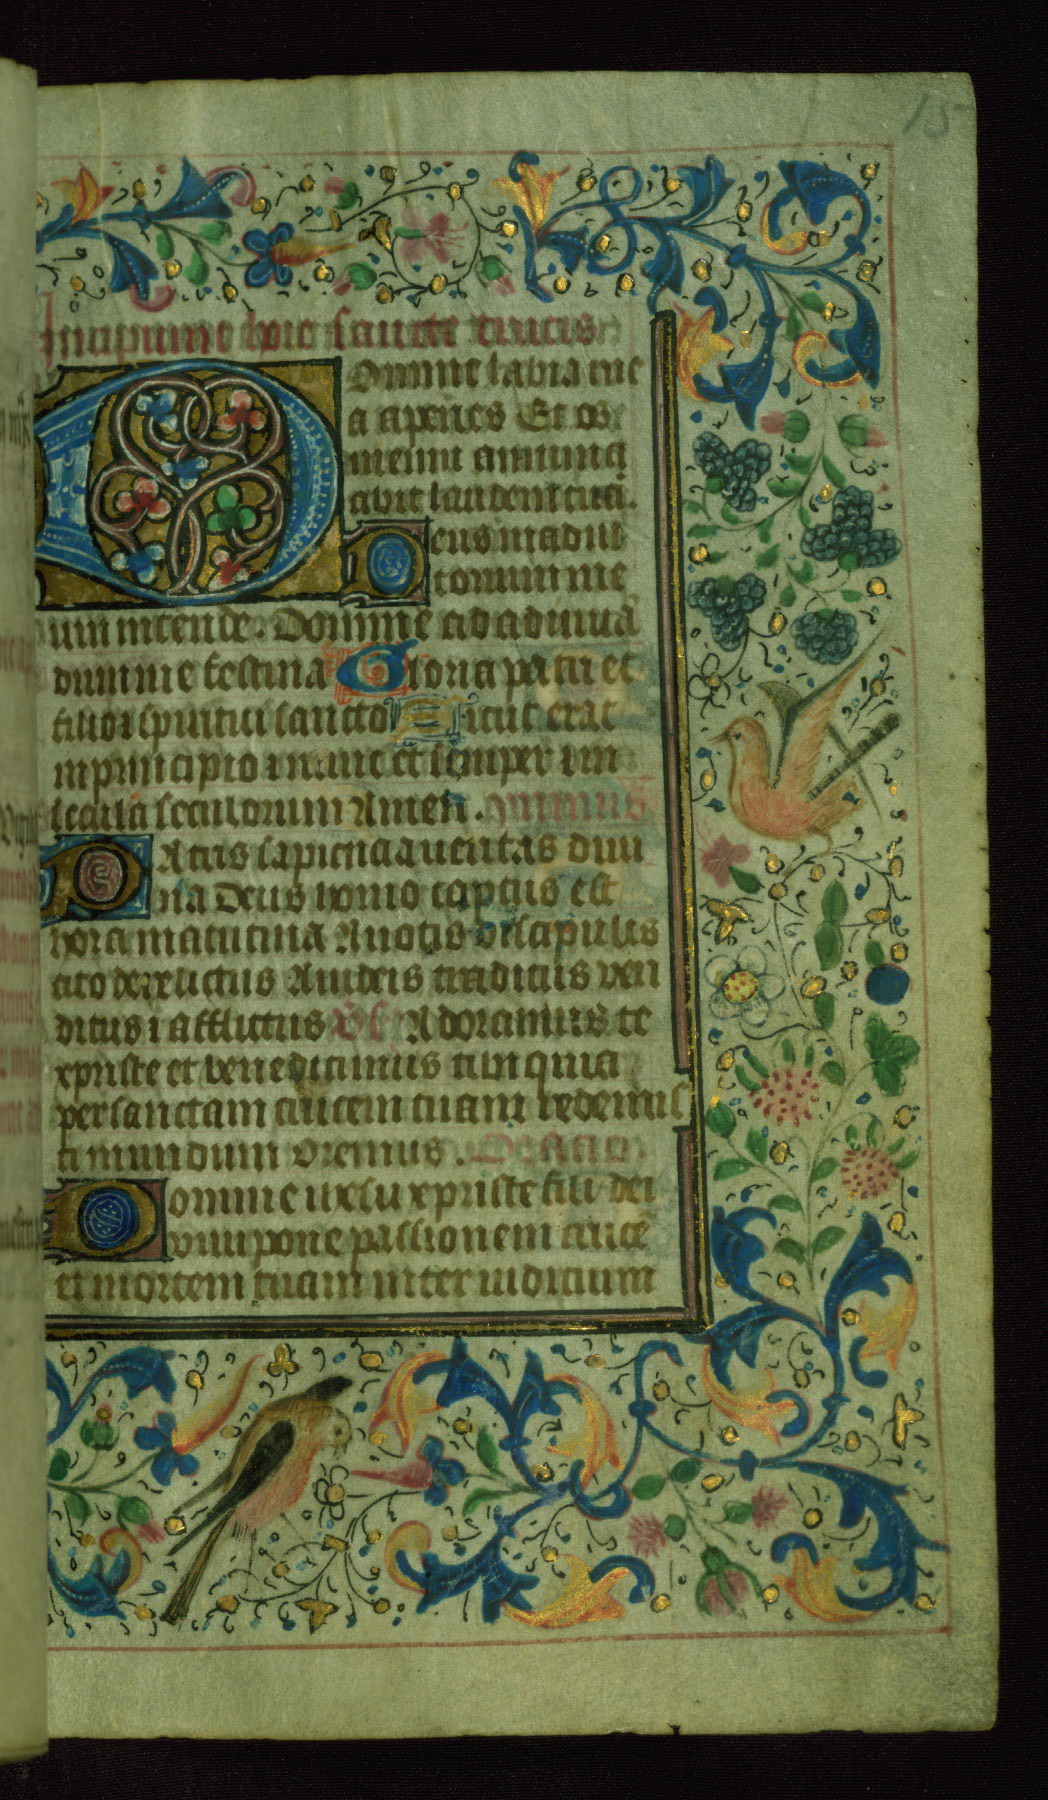 15
Incipiunt hore sancte crucis
Domine labia me
a aperies Et os
meum annunci
abit laudem tua.
Deus in adiu
torium me
um intende. Domine ad adiuuā
dum me festina Gloria patri et
filio et spiritui sancto Sicut erat
in principio et nunc et semper et in
secula seculorum Amen. ympnus
Patris sapiencia ueritas diui
na Deus homo captus est
hora matutina A notis discipulis
cito derelictus A iudeis traditus ven
ditus et afflictus Vs Adoramus te
xpriste et benedicimus tibi quia
per sanctam crucem tuam redemis
ti mundum Oremus. Oracio
Domine ihesu xpriste fili dei
viui pone passionem cruce
et mortem tuam inter iudicium